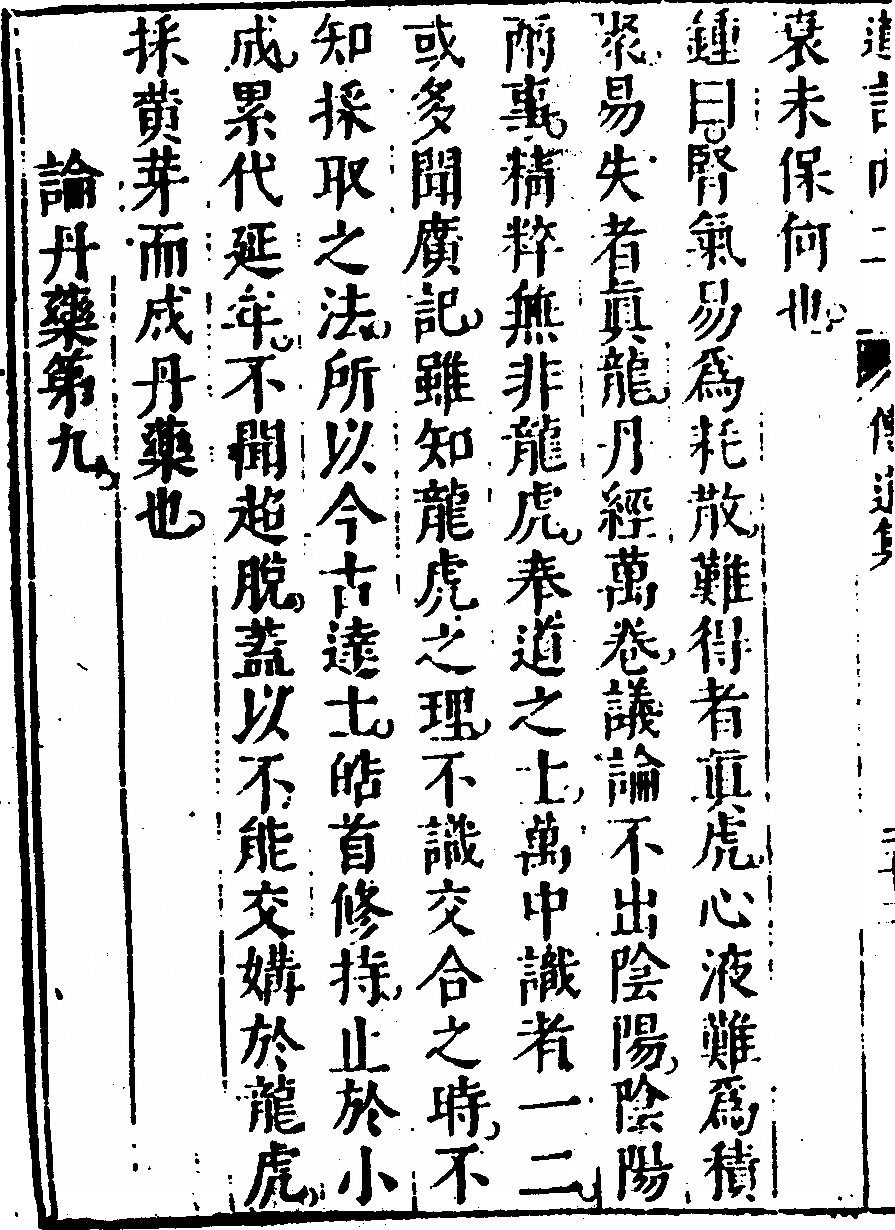 衰未保何也
鍾曰腎氣易爲耗散難得者眞虎心液難爲積
聚易失者眞龍丹經萬卷議論不出陰陽陰陽
兩事精粹無非龍虎奉道之士萬中識者一二
或多聞廣記雖知龍虎之理不識交合之時不
知採取之法所以今古達士皓首修持止於小
成累代延年不聞超脫蓋以不能交媾於龍虎
採黃芽而成丹藥也
論丹藥第九